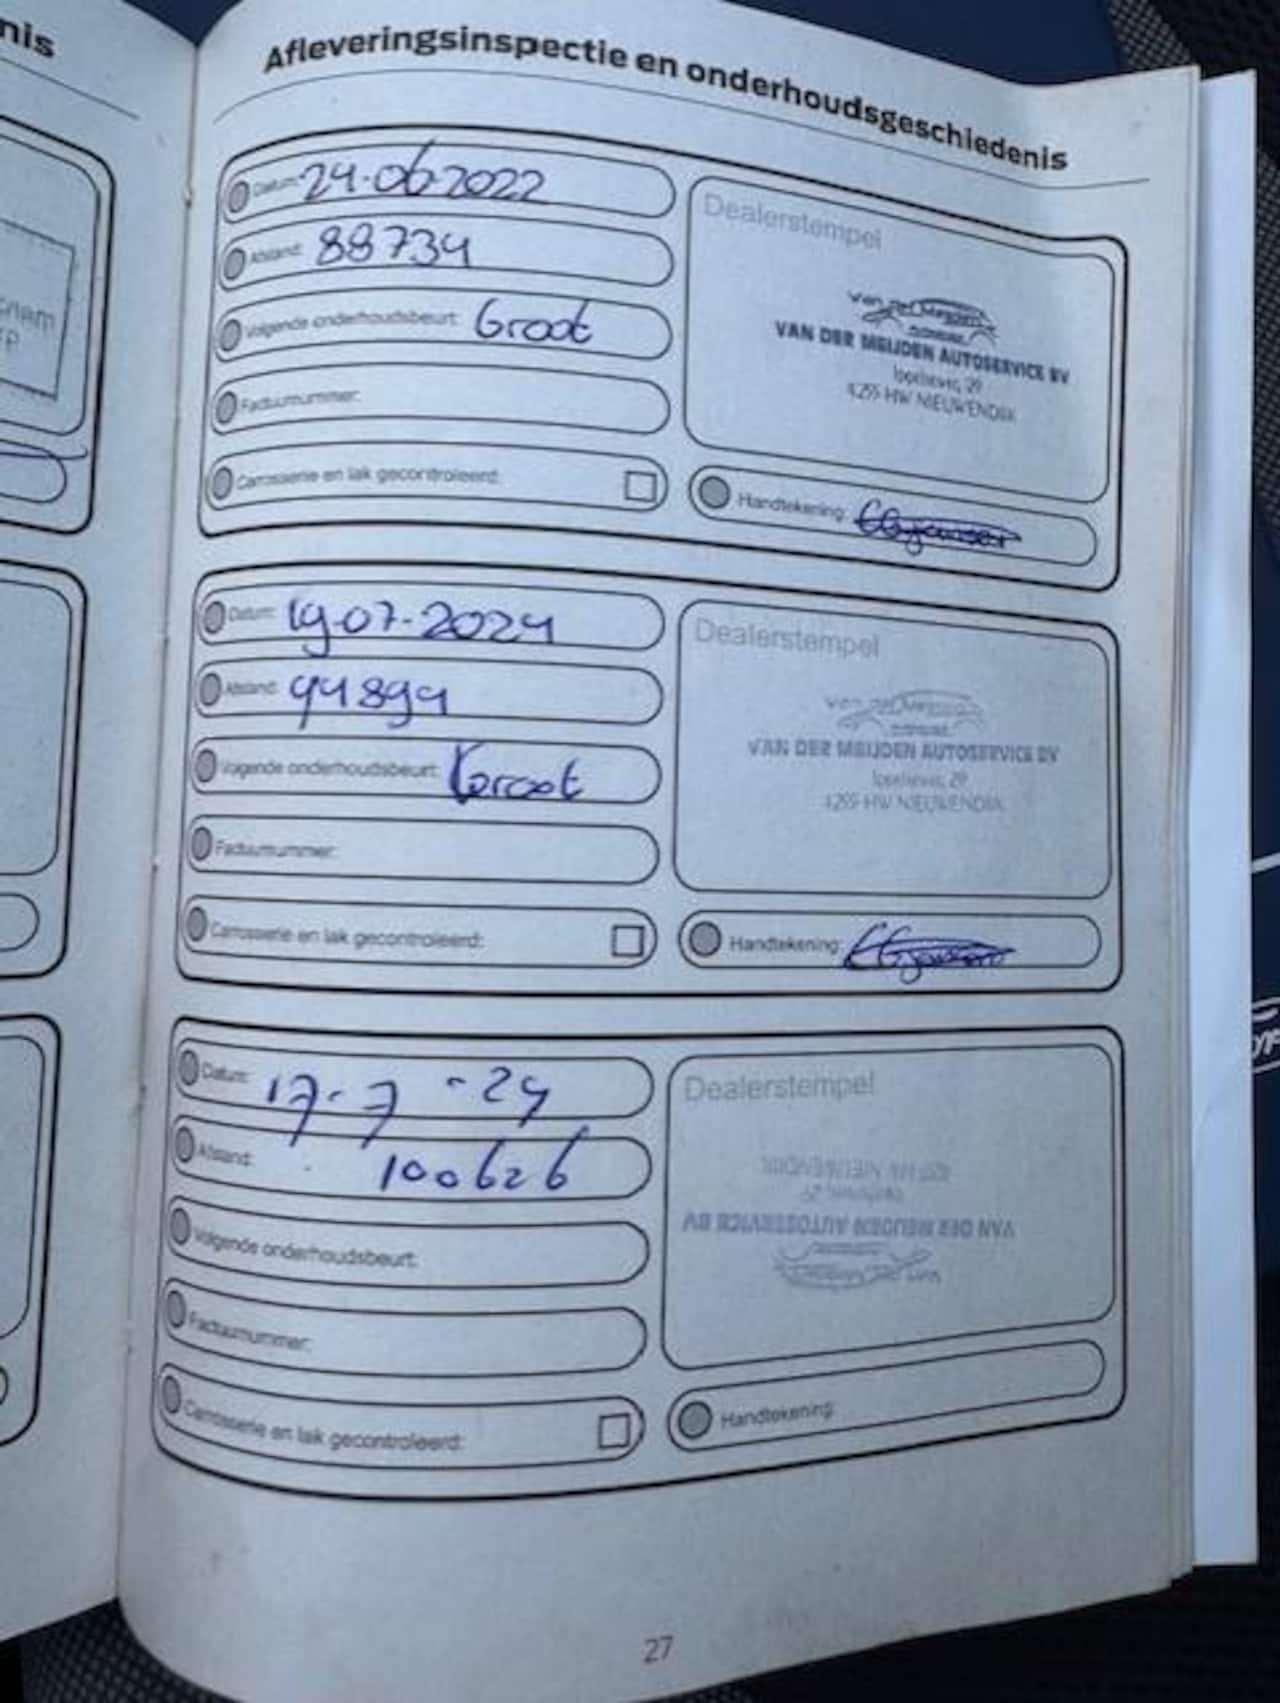 nis
Afleveringsinspectie en onderhoudsgeschiedenis
Datum: 24-06-2022
Afstand: 88734
Volgende onderhoudsbeurt: Groot
Factuurnummer:
Carrosserie en lak gecontroleerd:
Dealerstempel
VAN DER MEIJDEN AUTOSERVICE BV
29
4255 HW NIEUWENDIJK
Handtekening:
Datum: 19-07-2024
Afstand: 94894
Volgende onderhoudsbeurt: Groot
Factuurnummer:
Carrosserie en lak gecontroleerd:
Dealerstempel
VAN DER MEIJDEN AUTOSERVICE BV
29
4255 HW NIEUWENDIJK
Handtekening:
Datum: 17-7-24
Afstand: 100626
Volgende onderhoudsbeurt:
Factuurnummer:
Carrosserie en lak gecontroleerd:
Dealerstempel
VAN DER MEIJDEN AUTOSERVICE BV
29
4255 HW NIEUWENDIJK
Handtekening:
27